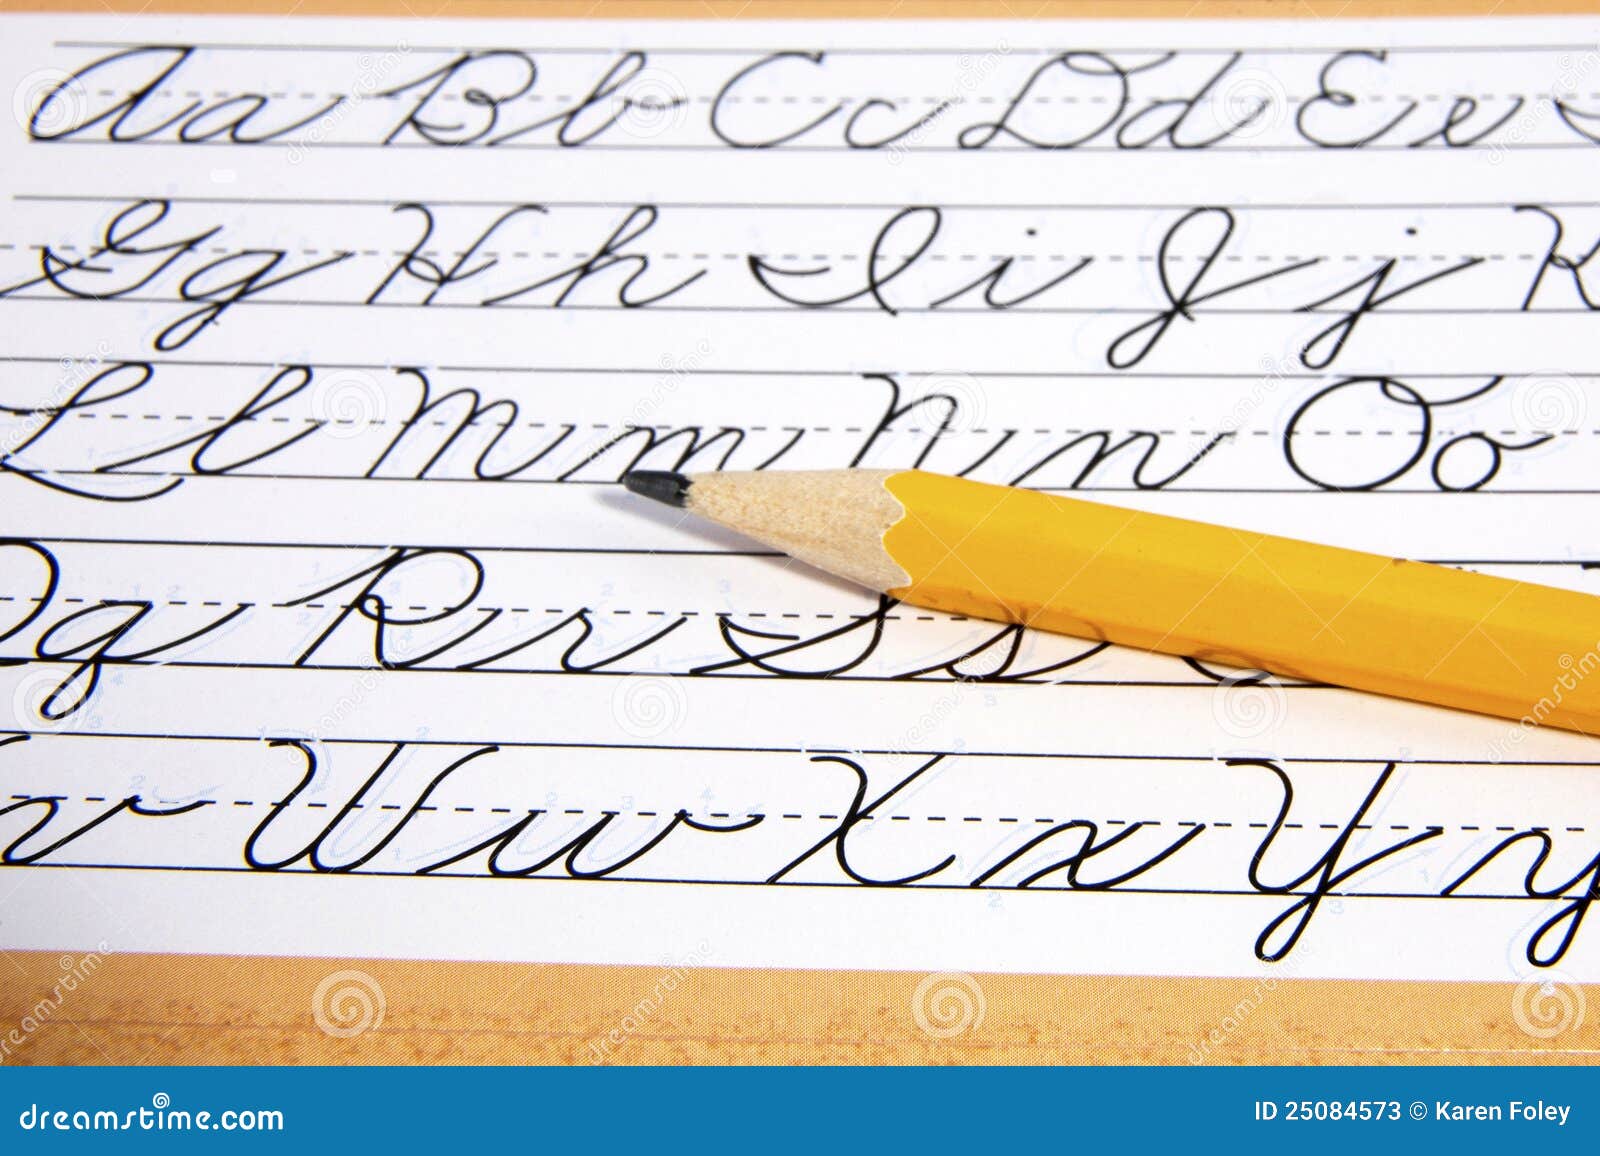 Aa Bb Cc Dd Ee
Gg Hh Ii Jj K
Ll Mm Nn Oo
q Rr Ss
v Ww Xx Yy
dreamstime.com
ID 25084573 © Karen Foley